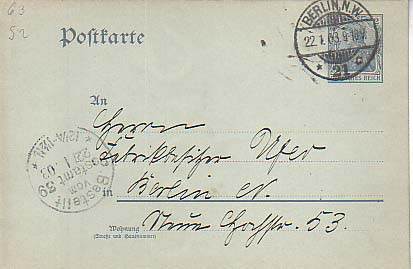 63
52
Postkarte
BERLIN, N.W.
22.1.03.9-10V.
* 21 c
REICH
An
Herrn
Fabrikbesitzer Ufer
in Berlin N.
Wohnung Neue Hochstr. 53.
(Straße und Hausnummer)
Bestellt
vom
Postamt 39
22/1.03